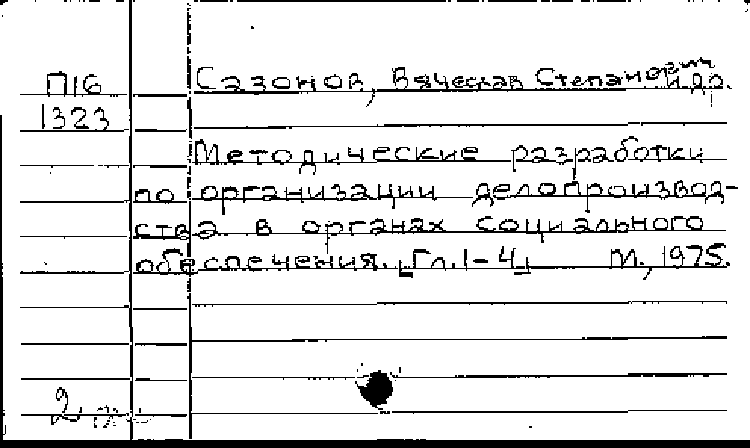 П16
1323
Сазонов, Вячеслав Степанович и др.
Методические разработки
по организации делопроизвод-
ства в органах социального
обеспечения. [Гл. 1-4] М., 1975.
2